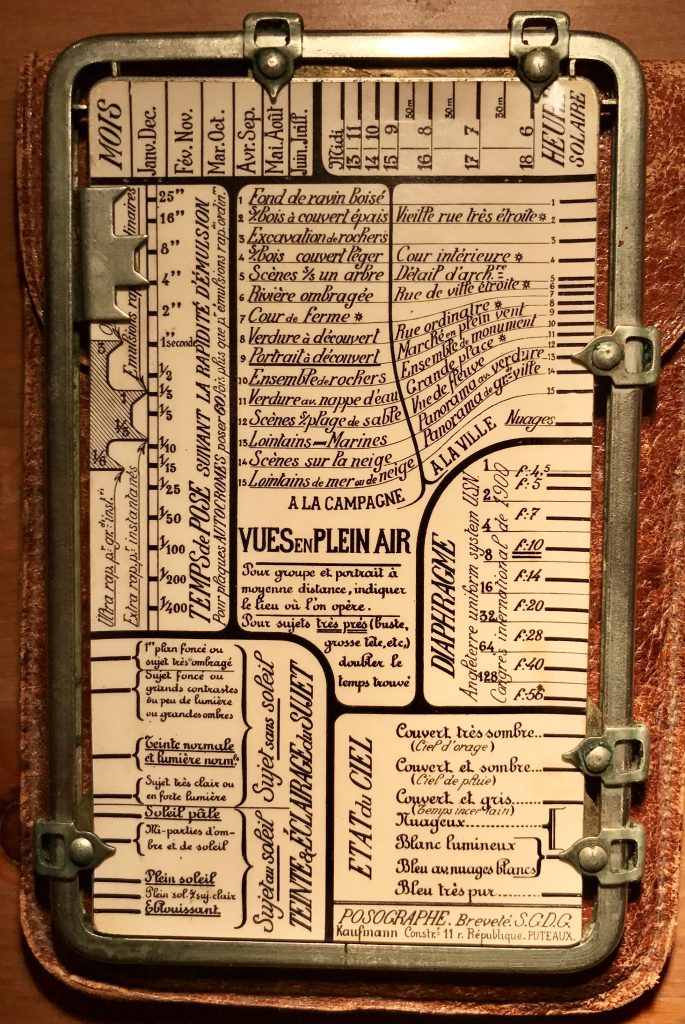 MOIS
Janv. Dec.
Fév. Nov.
Mar. Oct.
Avr. Sep.
Mai. Août
Juin. Juill.
Midi
13 11
14 10
15 9
30m
16 8
30m
17 7
30m
18 6
HEURE
SOLAIRE
25"
16"
8"
4"
2"
1" seconde
1/2
1/3
1/5
1/10
1/15
1/25
1/50
1/100
1/200
1/400
TEMPS de POSE SUIVANT LA RAPIDITÉ D'ÉMULSION
Pour plaques AUTOCHROMES poser 60 fois plus que p. émulsions rap. ordin.
Extra rap. p. instantanés
1 Fond de ravin boisé
2 s/Bois à couvert épais
3 Excavation de rochers
4 s/Bois couvert léger
5 Scènes s/s un arbre
6 Rivière ombragée
7 Cour de ferme *
8 Verdure à découvert
9 Portrait à découvert
10 Ensemble de rochers
11 Verdure av. nappe d'eau
12 Scènes s/plage de sable
13 Lointains — Marines
14 Scènes sur la neige
15 Lointains de mer ou de neige
A LA CAMPAGNE
Vieille rue très étroite *
Cour intérieure *
Détail d'arch.re
Rue de ville étroite *
Rue ordinaire *
Marché en plein vent
Ensemble de monument
Grande place *
Vue de fleuve
Panorama av. verdure
Panorama de gr.de ville
Nuages
A LA VILLE
1
2
3
4
5
6
7
8
9
10
11
12
13
14
15
VUES EN PLEIN AIR
Pour groupe et portrait à
moyenne distance, indiquer
le lieu où l'on opère.
Pour sujets très près (buste,
grosse tête, etc.)
doubler le
temps trouvé
DIAPHRAGME
Angleterre uniform system U.S.N.
Congres international de 1900
1 f:4,5
f:5
2 f:7
4
8 f:10
16 f:14
32 f:20
64 f:28
128 f:40
f:56
1er plan foncé ou
sujet très ombragé
Sujet foncé ou
grands contrastes
ou peu de lumière
ou grandes ombres
Teinte normale
et lumière norm.le
Sujet très clair ou
en forte lumière
Soleil pâle
Mi-parties d'om-
bre et de soleil
Plein soleil
Plein sol. s/suj. clair
Eblouissant
Sujet sans soleil
Sujet au soleil
TEINTE & ÉCLAIRAGE du SUJET
ETAT du CIEL
Couvert très sombre...
(Ciel d'orage)
Couvert et sombre...
(Ciel de pluie)
Couvert et gris...
(Temps incertain)
Nuageux...
Blanc lumineux
Bleu av. nuages blancs
Bleu très pur...
POSOGRAPHE. Breveté S.G.D.G.
Kaufmann Constr.r 11 r. République. PUTEAUX.